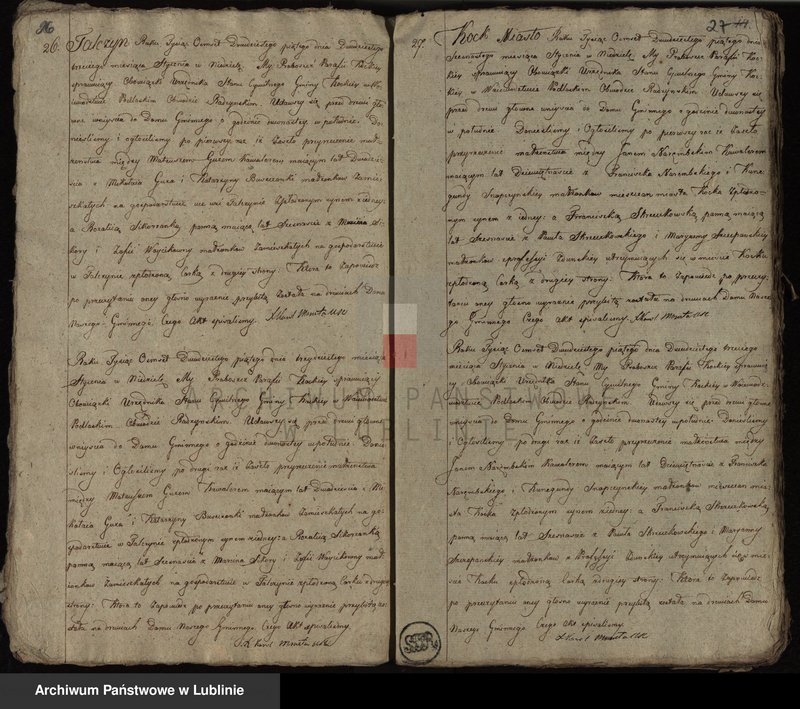 26
26. Talczyn Roku Tysiąc Ośmset Dwudziestego piątego dnia Dwudziestego
trzeciego miesiąca Stycznia w Niedzielę. My Proboszcz Parafii Kockiey
sprawuiący Obowiązki Urzędnika Stanu Cywilnego Gminy Kockiey w Wo-
iewodztwie Podlaskim Obwodzie Radzynskim. Udawszy się przed drzwi głó-
wne weyścia do Domu Gminnego o godzinie dwunastey w południe. Do-
nieśliśmy i ogłosiliśmy po pierwszy raz iż zaszło przyrzeczenie mał-
żeństwa między Mateuszem Guzem Kawalerem maiącym lat Dwadzie-
ścia z Mikołaia Guza i Katarzyny małżonków zamie-
szkałych na gospodarstwie we wsi Talczynie spłodzonym synem z iedney:
a Rozalią Sikorzanką panną maiącą lat Szesnascie z Marcina Si-
kory i Zofii Woycikowny małżonków zamieszkałych na gospodarstwie
w Talczynie spłodzoną Corką z drugiey strony. Ktora to Zapowiedz
po przeczytaniu oney głosno wyraznie przybitą została na drzwiach Domu
Naszego Gminnego. Czego Akt spisaliśmy. X Karol Moniuta USC
Roku Tysiąc Ośmset Dwudziestego piątego dnia trzydziestego miesiąca
Stycznia w Niedzielę My Proboszcz Parafii Kockiey sprawuiący
Obowiązki Urzędnika Stanu Cywilnego Gminy Kockiey w Woiewodztwie
Podlaskim Obwodzie Radzynskim. Udawszy się przed drzwi główne
wniyscia do Domu Gminnego o godzinie dwunastey w południe. Donie-
śliśmy i Ogłosiliśmy po drugi raz iż zaszło przyrzeczenie małżeństwa
między Mateuszem Guzem Kawalerem maiącym lat Dwadzieścia z Mi-
kołaia Guza i Katarzyny małżonków Zamieszkałych na go-
spodarstwie w Talczynie spłodzonym synem z iedney: a Rozalią Sikorzanką
panną maiącą lat Szesnaście z Marcina Sikory i Zofii Woycikowny mał-
żonków Zamieszkałych na gospodarstwie w Talczynie spłodzoną Corką z drugiey
strony. Ktora to Zapowiedz po przeczytaniu oney głosno wyraznie przybitą zo-
stała na drzwiach Domu Naszego Gminnego Czego Akt spisaliśmy
X Karol Moniuta USC
27
27. Kock Miasto Roku Tysiąc Ośmset Dwudziestego piątego dnia
Szesnastego miesiąca Stycznia w Niedzielę My Proboszcz Parafii Koc-
kiey sprawuiący Obowiązki Urzędnika Stanu Cywilnego Gminy Koc-
kiey w Woiewodztwie Podlaskim Obwodzie Radzynskim Udawszy się
przed drzwi główne wniyscia do Domu Gminnego o godzinie dwunastey
w południe. Donieśliśmy i Ogłosiliśmy po pierwszy raz iż Zaszło
przyrzeczenie małżeństwa między Janem Narzymbskim Kawalerem
maiącym lat Dziewiętnaście z Franciszka Narzymbskiego i Kune-
gundy małżonków mieszczan miasta Kocka spłodzo-
nym synem z iedney: a Franciszką Skruczkowską panną maiącą
lat Szesnascie z Pawła Skruczkowskiego i Maryanny Szczepanskiey
małżonków z professyi utrzymuiących się w mieście Kocku
spłodzoną Corką z drugiey strony. Ktora to Zapowiedz po przeczy-
taniu oney głosno wyraznie przybitą została na drzwiach Domu Nasze-
go Gminnego Czego Akt spisaliśmy. X Karol Moniuta USC
Roku Tysiąc Ośmset Dwudziestego piątego dnia Dwudziestego trzeciego
miesiąca Stycznia w Niedzielę My Proboszcz Parafii Kockiey sprawuią-
cy Obowiązki Urzędnika Stanu Cywilnego Gminy Kockiey w Woiewodz-
twie Podlaskim Obwodzie Radzynskim. Udawszy się przed drzwi główne
wniyscia do Domu Gminnego o godzinie dwunastey w południe. Donieśliśmy
i Ogłosiliśmy po drugi raz iż Zaszło przyrzeczenie małżeństwa między
Janem Narzymbskim Kawalerem maiącym lat Dziewiętnaście z Franciszka
Narzymbskiego i Kunegundy małżonków mieszczan mia-
sta Kocka spłodzonym synem z iedney: a Franciszką Skruczkowską
panną maiącą lat Szesnascie z Pawła Skruczkowskiego i Maryanny
Szczepanskiey małżonków z Professyi utrzymuiących się w mie-
ście Kocku spłodzoną Corką z drugiey strony. Ktora to Zapowiedz
po przeczytaniu oney głosno wyraznie przybitą została na drzwiach Domu
Naszego Gminnego Czego Akt spisaliśmy.
X Karol Moniuta USC
ARCHIWUM PAŃSTWOWE
W LUBLINIE
Archiwum Państwowe w Lublinie